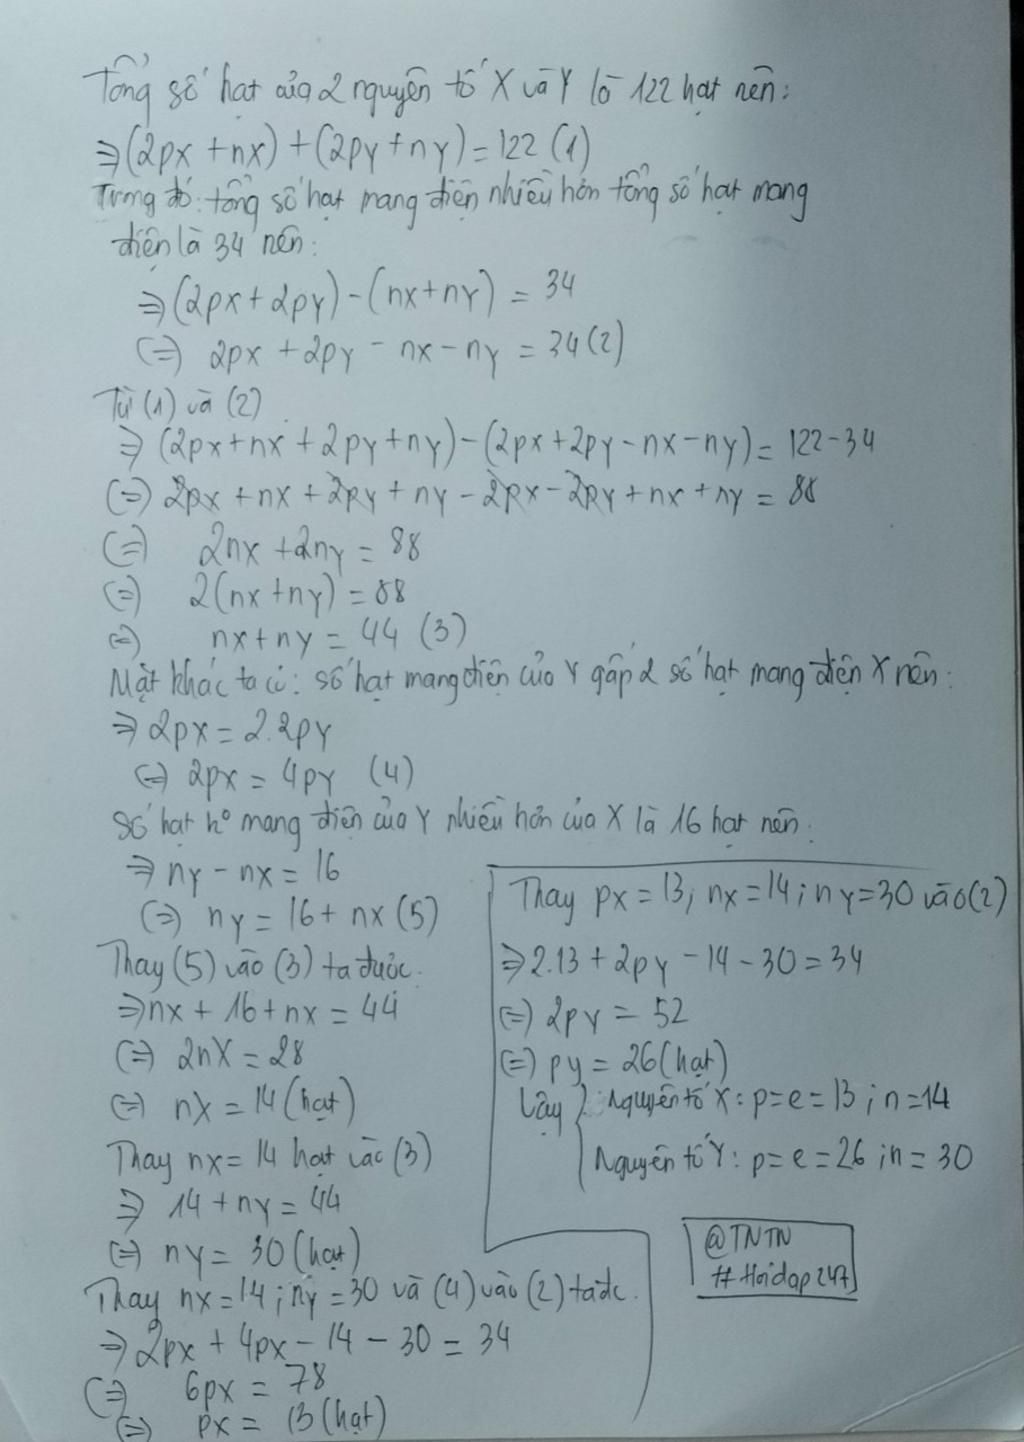 Tổng số hạt của 2 nguyên tố X và Y là 122 hạt nên:
⇒ (2pX + nX) + (2pY + nY) = 122 (1)
Trong đó: tổng số hạt mang điện nhiều hơn tổng số hạt mang
điện là 34 nên:
⇒ (2pX + 2pY) - (nX + nY) = 34
(=) 2pX + 2pY - nX - nY = 34 (2)
Từ (1) và (2)
⇒ (2pX + nX + 2pY + nY) - (2pX + 2pY - nX - nY) = 122 - 34
(=) 2pX + nX + 2pY + nY - 2pX - 2pY + nX + nY = 88
(=) 2nX + 2nY = 88
(=) 2(nX + nY) = 88
(=) nX + nY = 44 (3)
Mặt khác ta có: số hạt mang điện của Y gấp 2 số hạt mang điện X nên:
⇒ 2pX = 2.2pY
(=) 2pX = 4pY (4)
Số hạt ko mang điện của Y nhiều hơn của X là 16 hạt nên:
⇒ nY - nX = 16
(=) nY = 16 + nX (5)
Thay (5) vào (3) ta được:
⇒ nX + 16 + nX = 44
(=) 2nX = 28
(=) nX = 14 (hạt)
Thay nX = 14 hạt vào (3)
⇒ 14 + nY = 44
(=) nY = 30 (hạt)
Thay nX = 14 ; nY = 30 và (4) vào (2) ta đc:
⇒ 2pX + 4pX - 14 - 30 = 34
(=) 6pX = 78
(=) pX = 13 (hạt)
Thay pX = 13; nX = 14; nY = 30 vào (2)
⇒ 2.13 + 2pY - 14 - 30 = 34
(=) 2pY = 52
(=) pY = 26 (hạt)
Vậy { Nguyên tố X: p = e = 13 ; n = 14
Nguyên tố Y: p = e = 26 ; n = 30
@TNTN
#Hoidap247